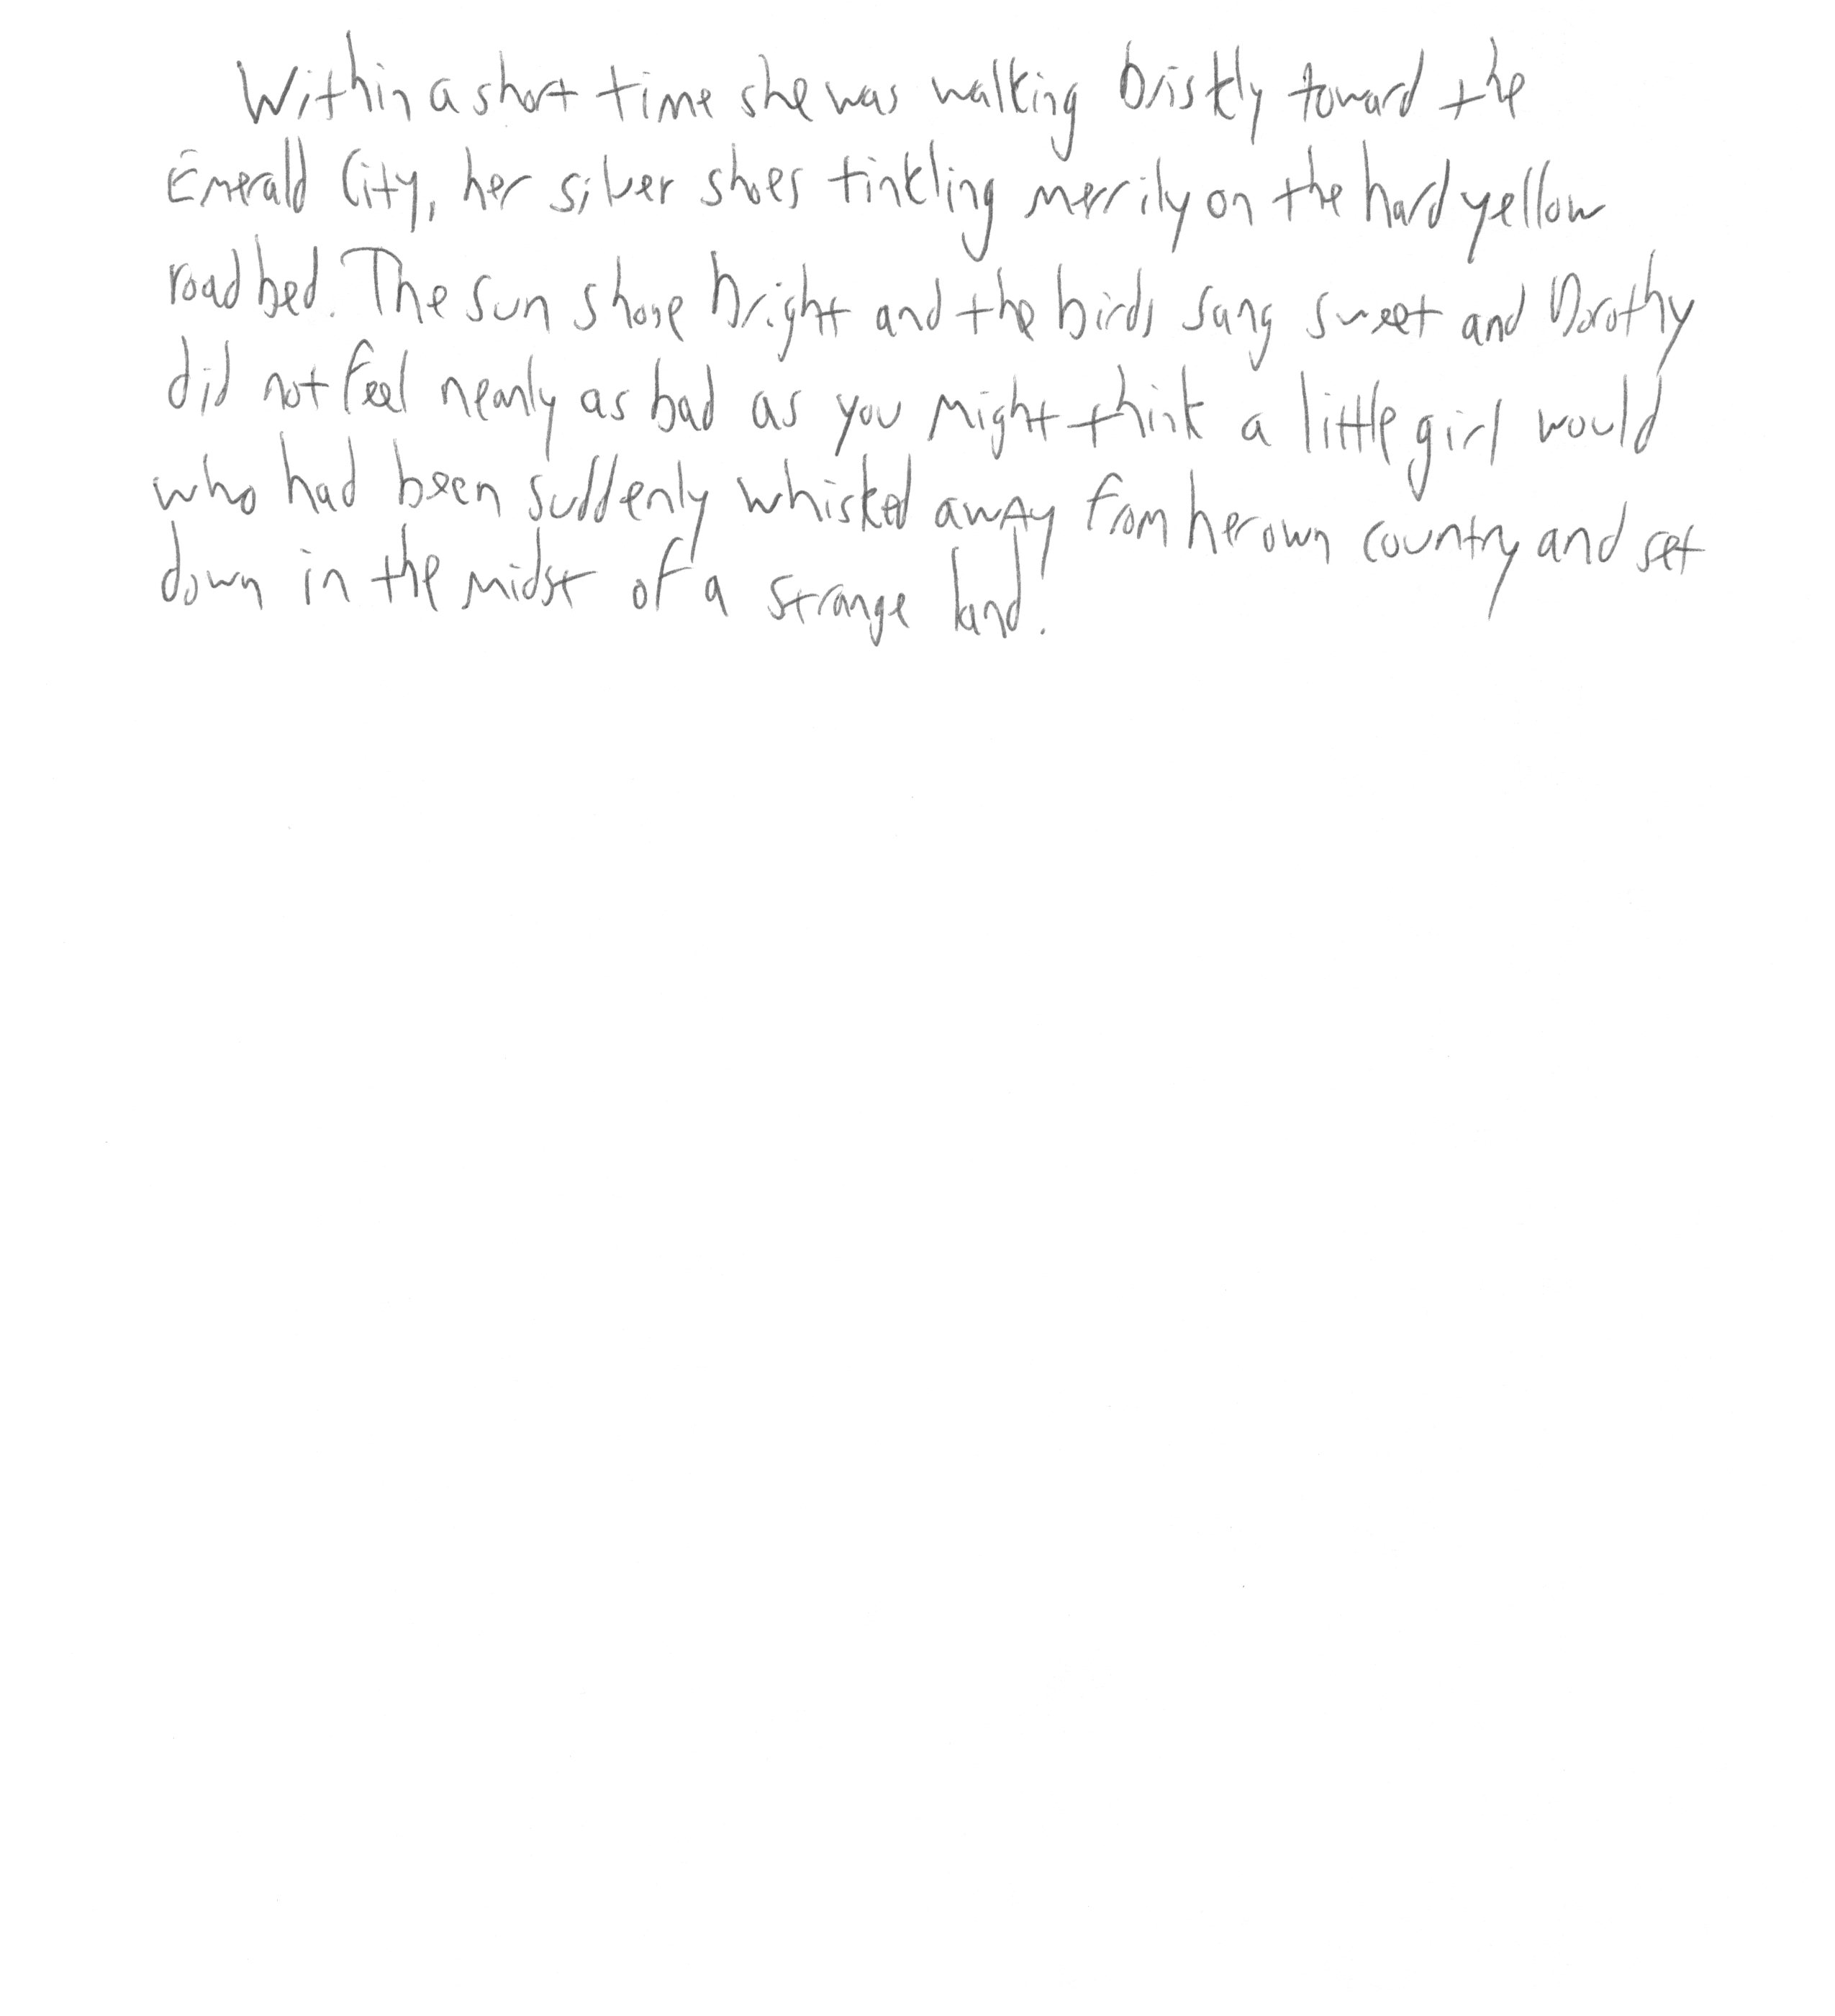 Within a short time she was walking briskly toward the
Emerald City, her silver shoes tinkling merrily on the hard yellow
road bed. The sun shone bright and the birds sang sweet and Dorothy
did not feel nearly as bad as you might think a little girl would
who had been suddenly whisked away from her own country and set
down in the midst of a strange land.